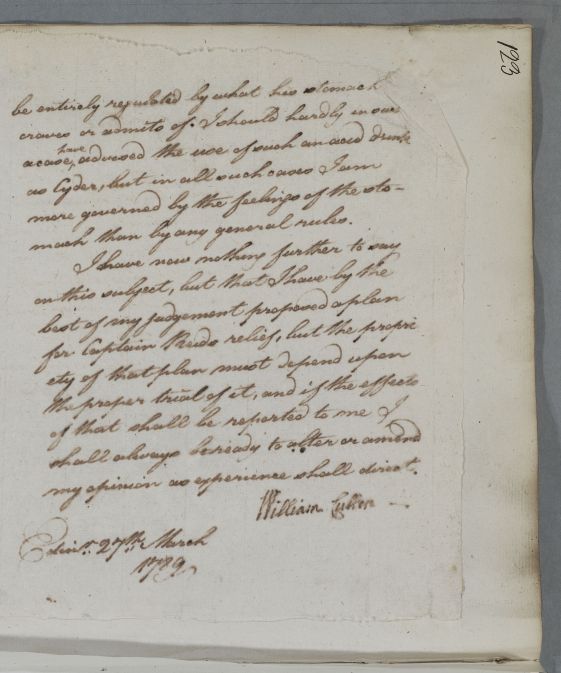 123
be entirely regulated by what his stomach
craves or admits of. I should hardly in such
a case, have advised the use of such an acid drink
as Cyder, but in all such cases I am
more governed by the feelings of the sto-
mach than by any general rules.
I have now nothing further to say
on this subject, but that I have by the
best of my judgement proposed a plan
for Captain Reids relief, but the propri-
ety of that plan must depend upon
the proper trial of it, and if the effects
of that shall be reported to me I
shall always be ready to alter or amend
my opinion as experience shall direct.
William Cullen
Edinr. 27th. March
1789